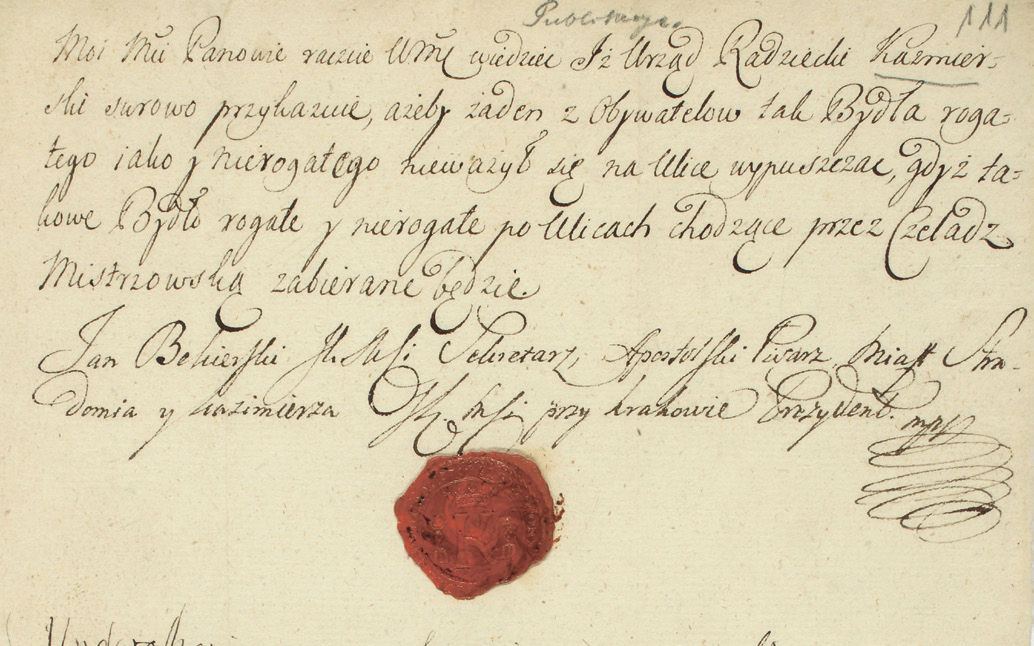 111
Moi Mći Panowie raczcie WMć wiedziec Jż Urząd Radziecki Kazmier-
ski surowo przykazuie, ażeby żaden z Obywatelow tak Bydła roga-
tego iako y nierogatego nieważył się na Ulice wypuszczac, gdyż ta-
kowe Bydło rogate y nierogate po Ulicach chodzące przez Czeladz
Mistrzowską zabierane będzie.
Jan Bekierski Sekretarz, Apostolski Pisarz Miast Stra-
domia y Kazimierza przy Krakowie Prezydent. mpp